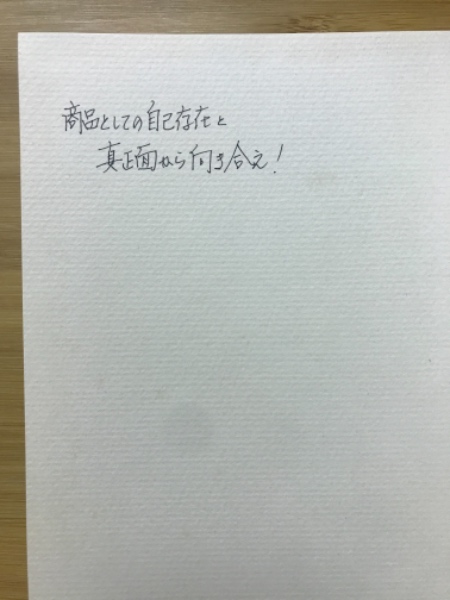 商品としての自己存在と
真正面から向き合え!